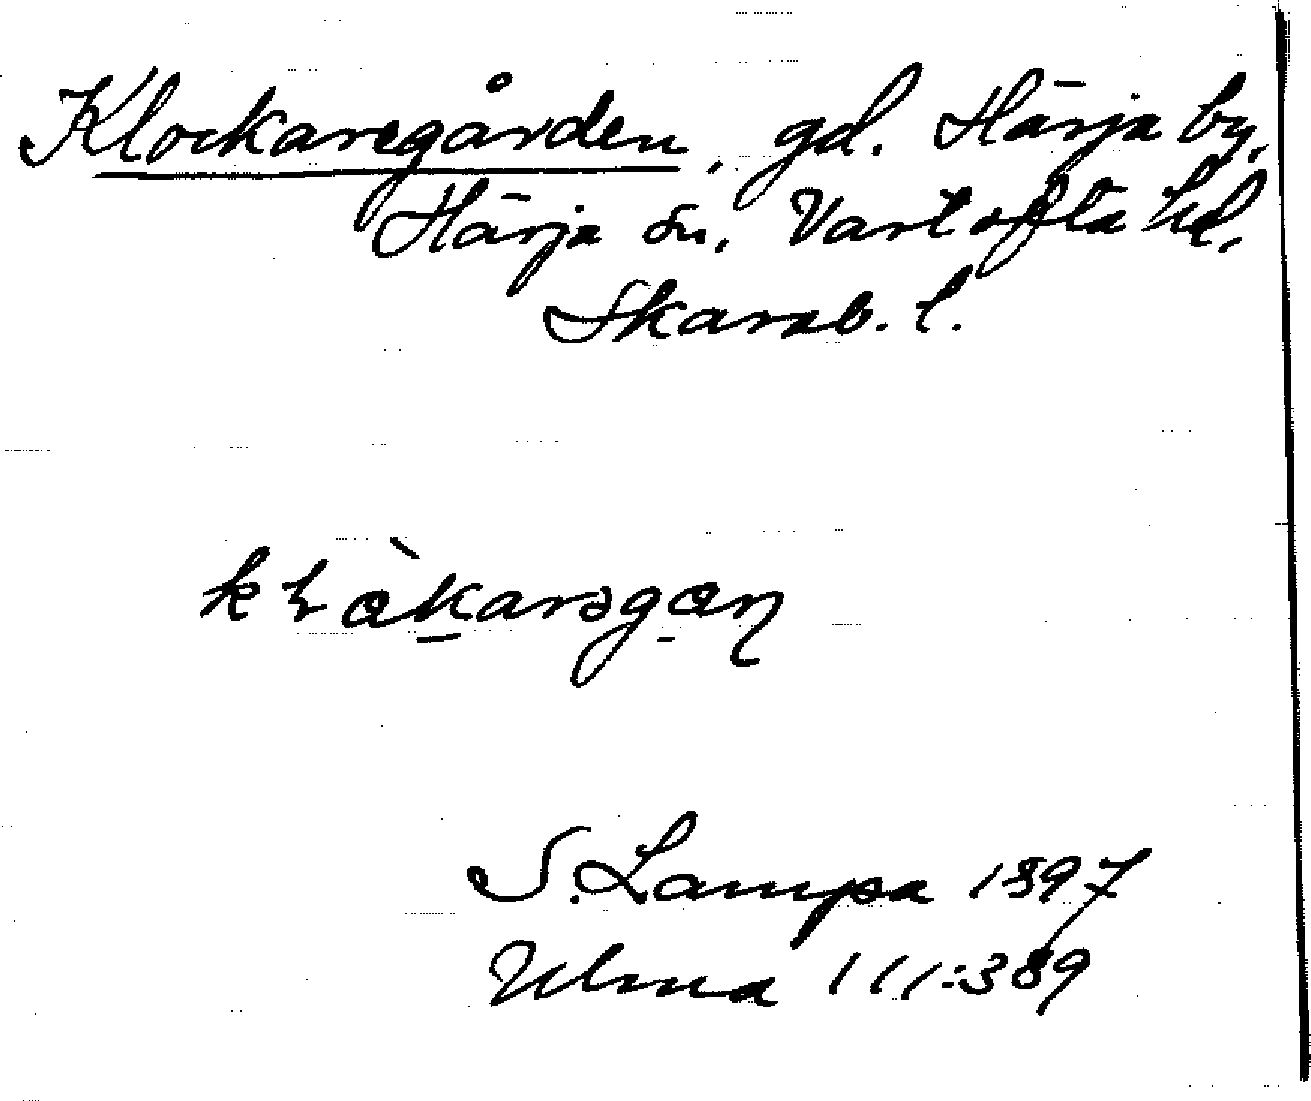 Klockaregården, gd. Härja by,
Härja sn, Vartofta hd.
Skarab. l.
S. Lampa 1897
Ulma 111:389